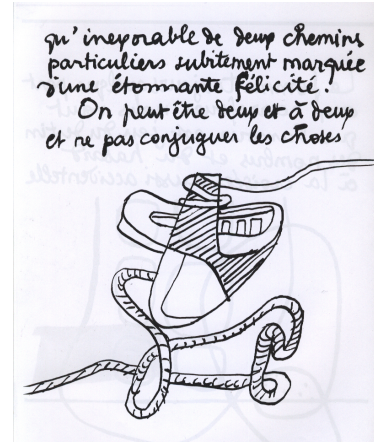 qu'inexorable de deux chemins
particuliers subitement marquée
d'une étonnante félicité.
On peut être deux et à deux
et ne pas conjuguer les choses